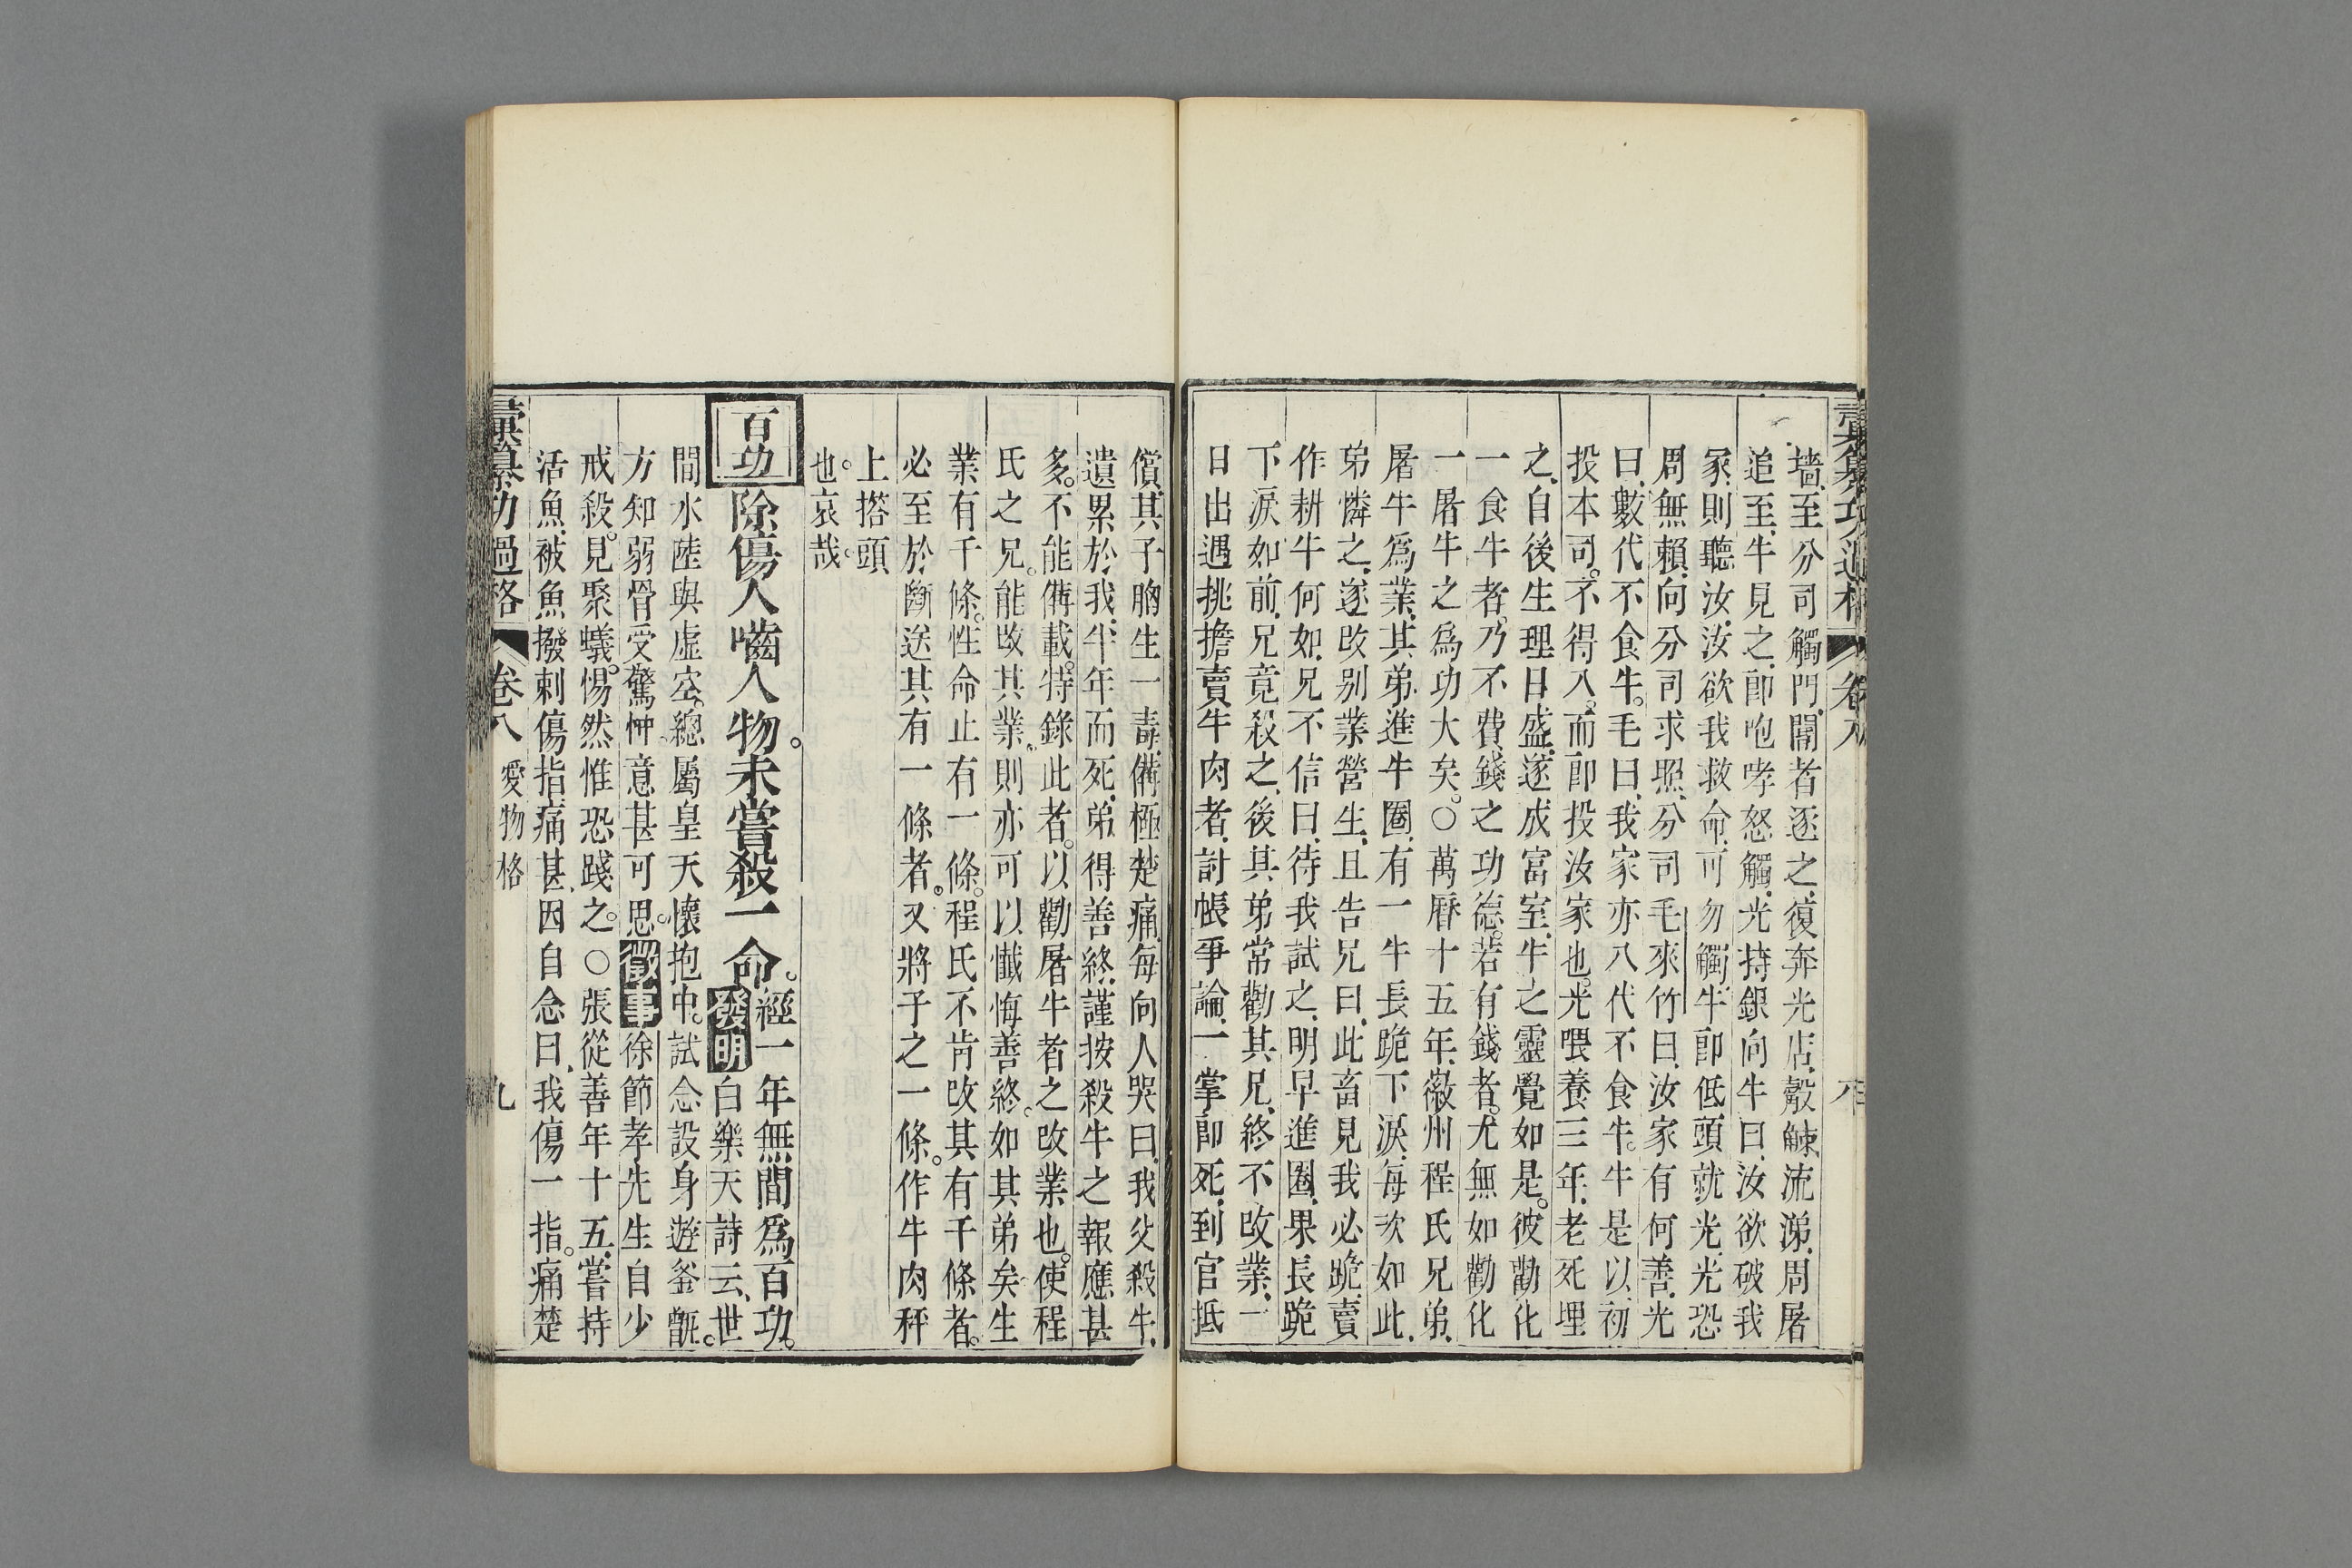 彙纂功過格 卷八
墻、至分司觸門、閽者逐之、復奔光店、觳觫流涕、周屠
追至、牛見之、卽咆哮怒觸、光持銀向牛曰、汝欲破我
家、則聽汝、汝欲我救命、可勿觸、牛卽低頭就光、光恐
周無賴、向分司求照、分司毛來竹曰、汝家有何善、光
曰、數代不食牛。毛曰、我家亦八代不食牛。牛是以初
投本司。不得入。而卽投汝家也。光喂養三年、老死埋
之、自後生理日盛、遂成富室、牛之靈覺如是。彼勸化
一食牛者。乃不費錢之功德。若有錢者。尤無如勸化
一屠牛之爲功大矣。○萬曆十五年、徽州程氏兄弟、
屠牛爲業、其弟進牛圈、有一牛長跪下淚、每次如此、
弟憐之、遂改別業營生、且告兄曰、此畜見我必跪、賣
作耕牛何如、兄不信曰、待我試之、明早進圈、果長跪
下淚如前、兄竟殺之、後其弟常勸其兄、終不改業、一
日出遇挑擔賣牛肉者、討帳爭論、一掌卽死、到官抵
償、其子胸生一毒、備極楚痛、每向人哭曰、我父殺牛、
遺累於我、半年而死、弟得善終、謹按殺牛之報應甚
多。不能備載。特錄此者。以勸屠牛者之改業也。使程
氏之兄。能改其業。則亦可以懺悔善終。如其弟矣。生
業有千條。性命止有一條。程氏不肯改其有千條者。
必至於斷送其有一條者。又將子之一條。作牛肉秤
上搭頭
也。哀哉。
百功 除傷人嚙人物。未嘗殺一命。經一年無間爲百功。
發明 白樂天詩云、世
間水陸與虛空。總屬皇天懷抱中。試念設身遊釜甑。
方知弱骨受驚忡。意甚可思。徵事 徐節孝先生自少
戒殺。見聚蟻。惕然惟恐踐之。○張從善年十五、嘗持
活魚、被魚撥刺傷指、痛甚、因自念曰、我傷一指。痛楚
彙纂功過格 卷八 愛物格 九